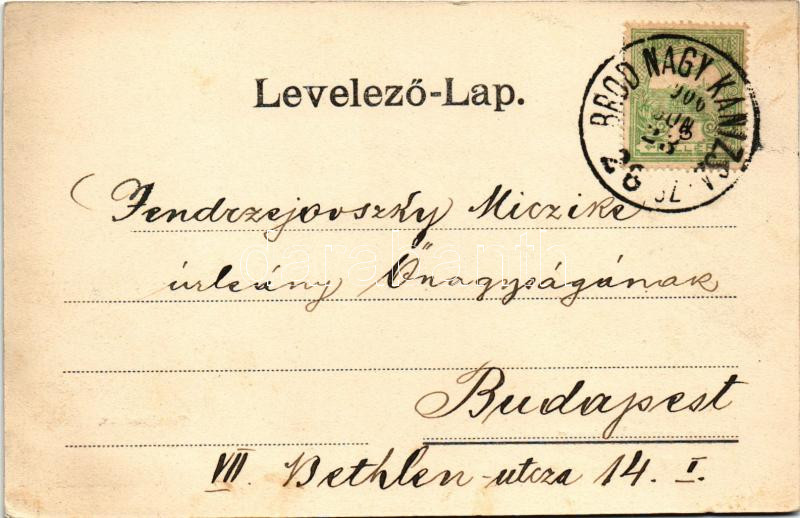 Levelező-Lap.
BROD NAGY KANIZSA
906
JUN
23
26 SZ.
Jendrzejovszky Miczike
úrleány Őnagyságának
Budapest
VII. Bethlen-utcza 14. I.